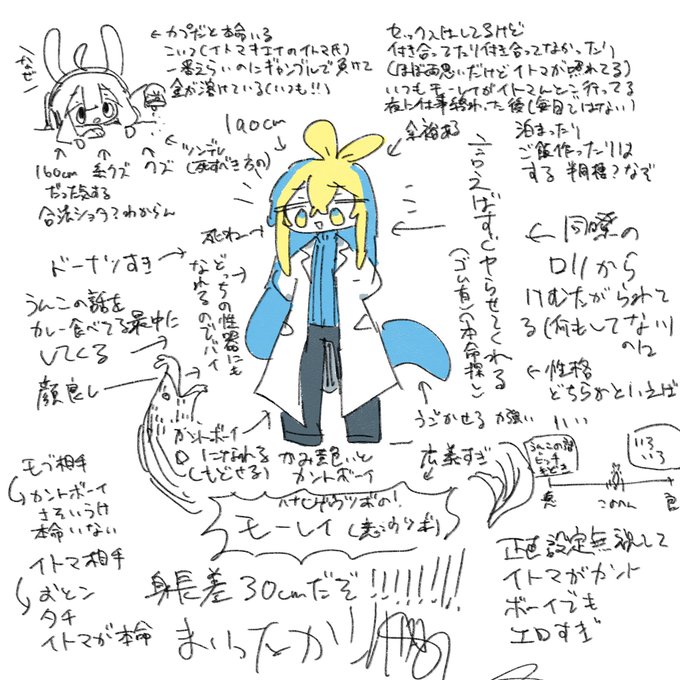 なぜ
← カプだと本命いる
こいつ(イトマキエイのイトマ氏)
一番えらいのにギャンブルで負けて
金が溶けている(いつも!!)
160cm
だった気する
合法ショタ?わからん
クズ
ツンデレ
(死すべき方の)
セックスはしてるけど
付き合ってたり付き合ってなかったり
(ほぼ両思いだけどイトマが照れてる)
いつもモーレイがイトマんとこ行ってる
夜に仕事終わった後(毎日ではない)
泊まったり
ご飯作ったりは
する
190cm
余裕ある
言えばすぐヤらせてくれる
(ゴム有)(本命探し)
死ね→
どっちの性器にも
なれるのでバイ
ドーナツすき→
うんこの話を
カレー食べてる最中に
してくる
顔良し
← 同僚の
ロリから
けむたがられて
る(何もしてない)
のに
←性格
どちらかといえば
いい
うごかせる 力強い
カントボーイ
になれる
(もどせる)
かみ黄色いと
カントボーイ
広義すぎ
ハナヒゲウツボの!
モーレイ
うんこの話
ビッチ
いろ
いろ
悪
このへん
良
モブ相手
カントボーイ
さそいうけ
本命いない
イトマ相手
おとこ
タチ
イトマが本命
身長差30cmだぞ!!!!!!!
まいったか!!
正直設定無視して
イトマがカント
ボーイでも
エロすぎ